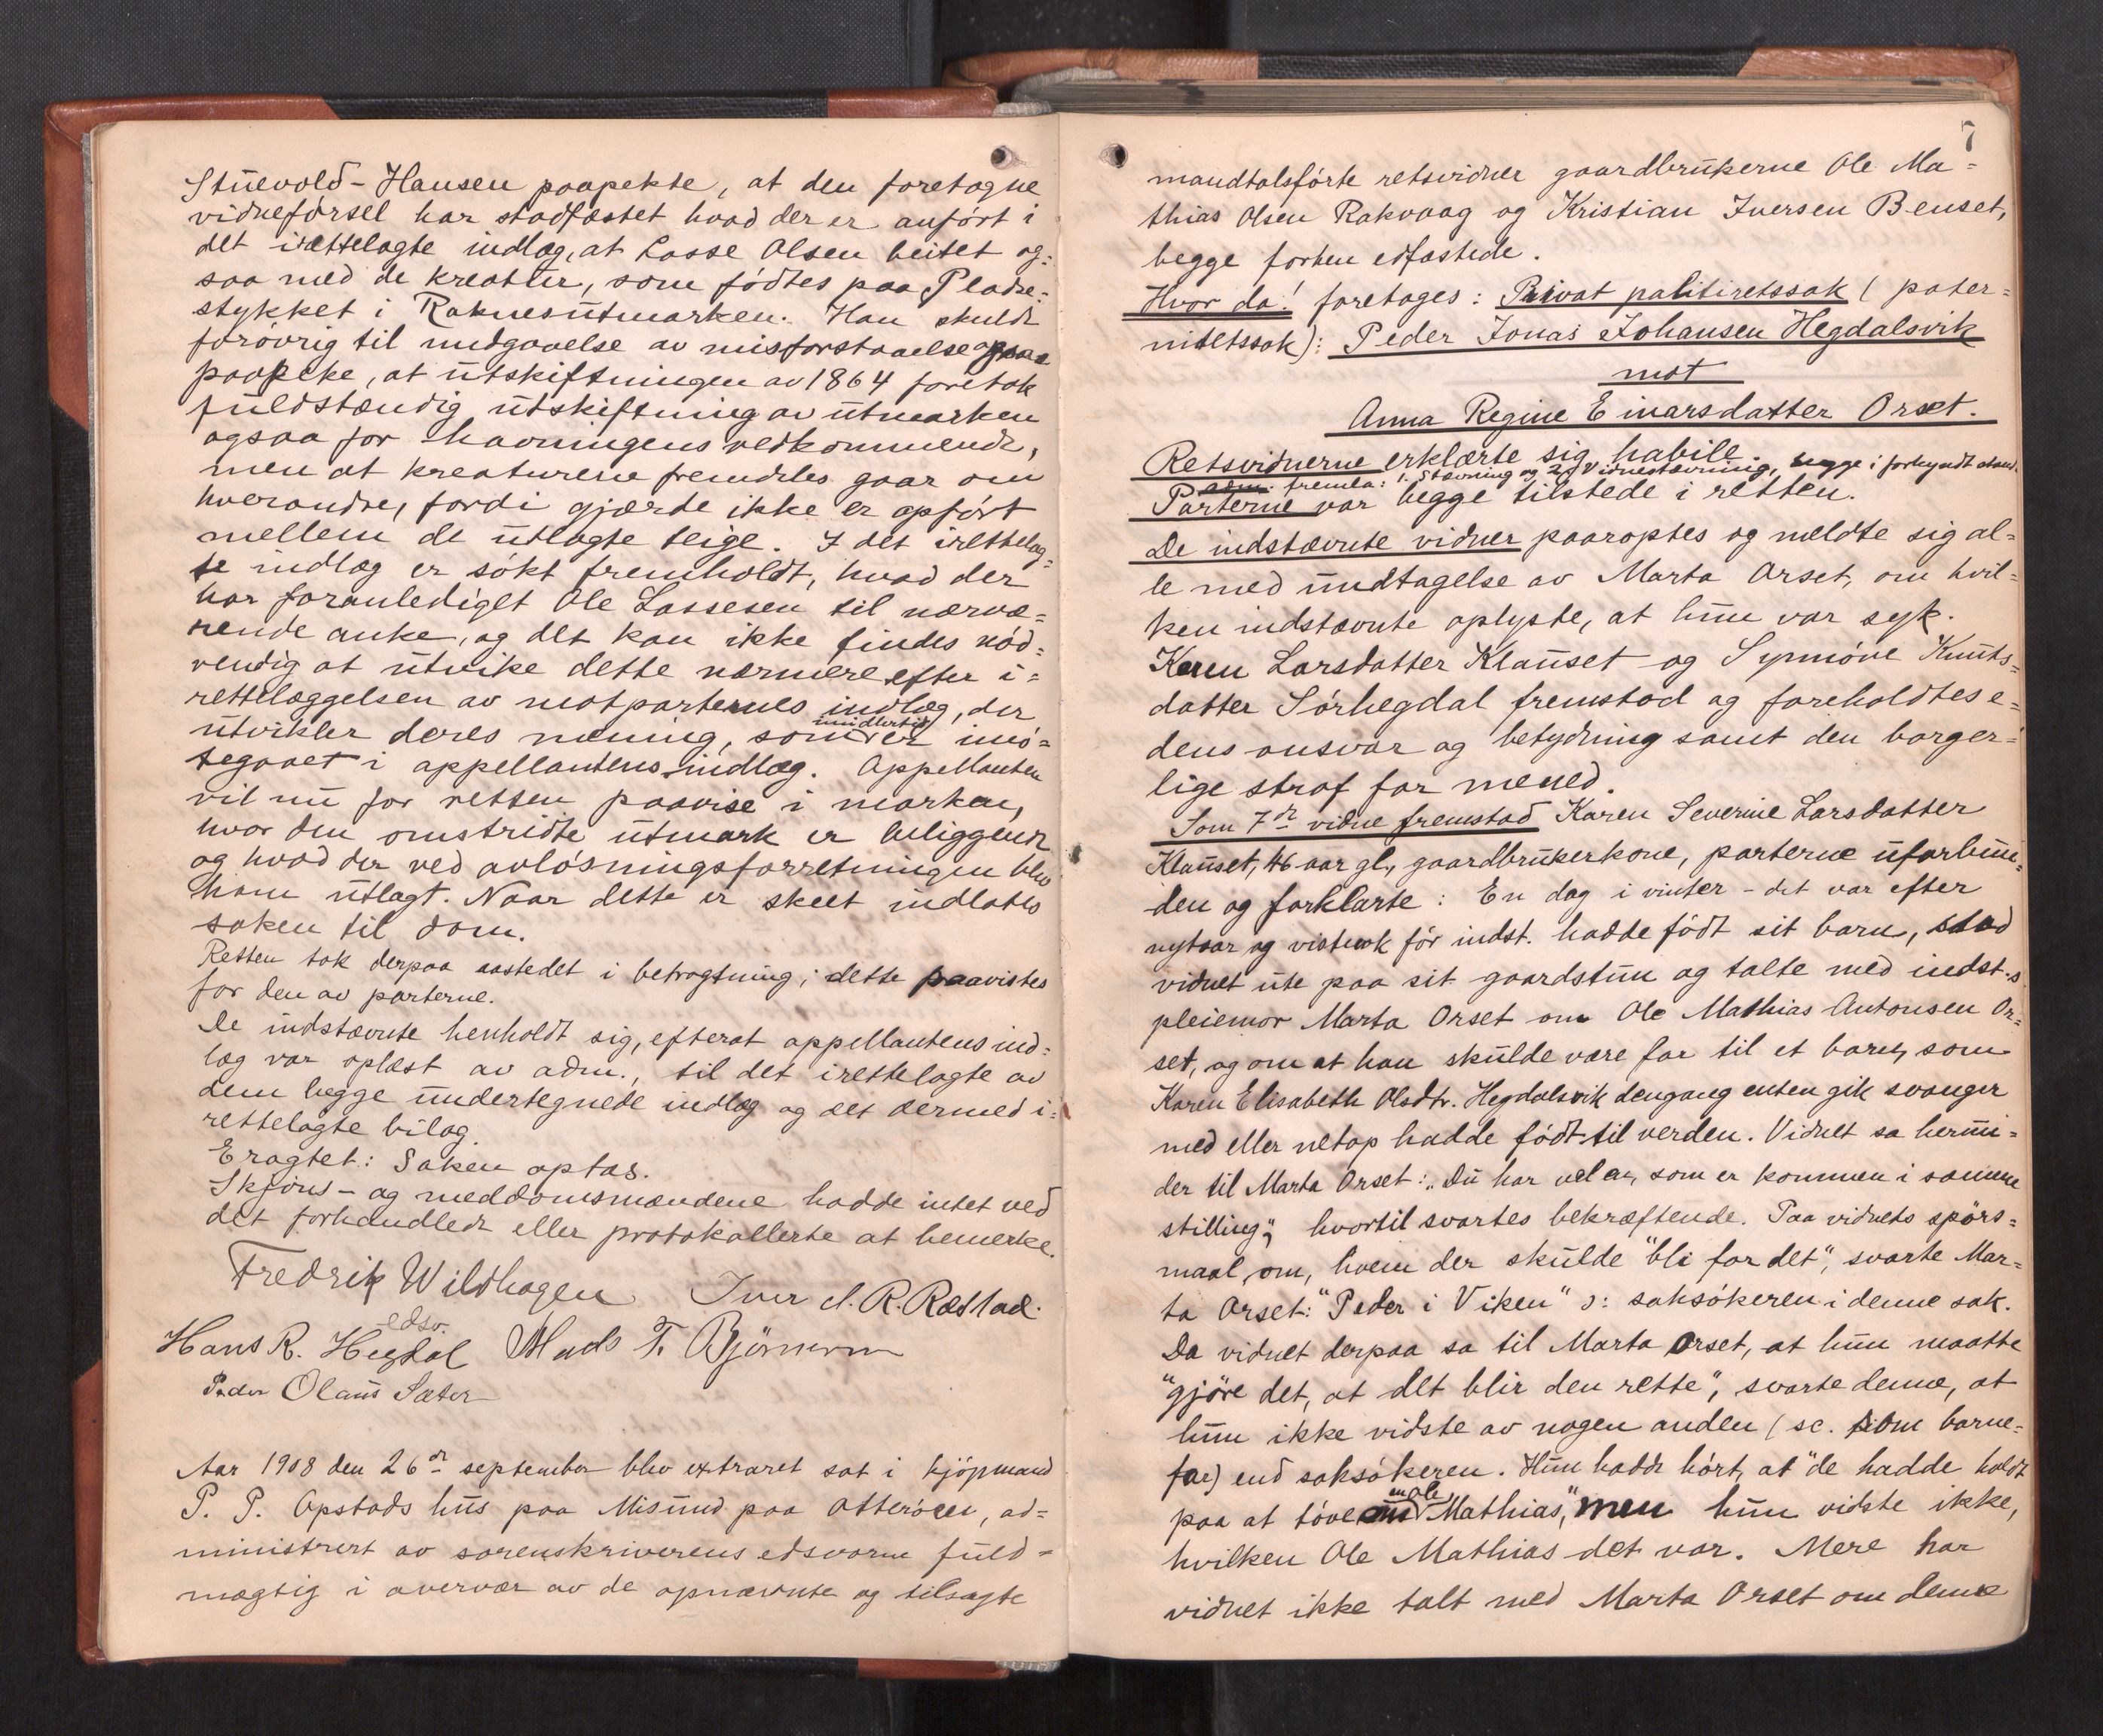 Stüevold-Hansen paapekte, at den foretagne
vidneførsel har stadfæstet hvad der er anført i
det irættelagte indlæg, at Lasse Olsen beitet og-
saa med de kreatur, som fødtes paa Pladse-
stykket i Raknesutmarken. Han skulde
forøvrig til undgaaelse av misforstaaelse
paapeke, at utskiftningen av 1864 foretok
fuldstændig utskiftning av utmarken
ogsaa for havningens vedkommende,
men at kreaturene fremdeles gaar om
hverandre, fordi gjærde ikke er opført
mellem de utlagte teige. I det irettelag-
te indlæg er søkt fremholdt, hvad der
har foranlediget Ole Lassesen til nærvæ-
rende anke, og det kan ikke findes nød-
vendig at utvike dette nærmere efter i-
rettelæggelsen av motparternes indlæg, der
utvikler deres mening, som imidlertid er imø-
tegaaet i appellantens indlæg. Appellanten
vil nu for retten paavise i marken,
hvor den omstridte utmark er beliggende
og hvad der ved avløsningsforretningen blev
ham utlagt. Naar dette er skeet indlates
saken til dom.
Retten tok derpaa aastedet i betragtning; dette paavistes
for den av parterne.
De indstævnte henholdt sig, efterat appellantens ind-
læg var oplæst av adm., til det irettelagte av
dem begge undertegnede indlæg og det dermed i-
rettelagte bilag.
Eragtet: Saken optas.
Skjøns- og meddomsmændene hadde intet ved
det forhandlede eller protokollerte at bemerke.
Fredrik Wildhagen Iver A. R. Røstad.
edsv.
Hans R. Hegdal Mads T. Bjørnerem
Peder Olaus Sæter
Aar 1908 den 26de september blev extraret sat i kjøpmand
P. P. Opstads hus paa Misund paa Otterøen, ad-
ministrert av sorenskriverens edsvorne fuld-
mægtig i overvær av de opnævnte og tilsagte
7
mandtalsførte retsvidner gaardbrukerne Ole Ma-
thias Olsen Rakvaag og Kristian Iversen Benset,
begge forhen edfæstede.
Hvor da! foretages: Privat politiretssak (pater-
nitetssak): Peder Jonas Johansen Hegdalsvik
mot
Anna Regine Einarsdatter Orset.
Retsvidnerne erklærte sig habile.
adm. fremla: 1. Stævning og 2. Vidnestævning, begge i forkyndt stand.
Parterne var begge tilstede i retten.
De indstævnte vidner paaroptes og meldte sig al-
le med undtagelse av Marta Orset, om hvil-
ken indstævnte oplyste, at hun var syk.
Karen Larsdatter Klauset og Synnøve Knuts-
datter Sørhegdal fremstod og foreholdtes e-
dens ansvar og betydning samt den borger-
lige straf for mened.
Som 7de vidne fremstod Karen Severine Larsdatter
Klauset, 46 aar gl., gaardbrukerkone, parterne uforbun-
den og forklarte: En dag i vinter - det var efter
nytaar og vistnok før indst. hadde født sit barn, stod
vidnet ute paa sit gaardstun og talte med indst.s
pleiemor Marta Orset om Ole Mathias Antonsen Or-
set, og om at han skulde være far til et barn, som
Karen Elisabeth Olsdtr. Hegdalsvik dengang enten gik svanger
med eller netop hadde født til verden. Vidnet sa herun-
der til Marta Orset: „Du har vel en, som er kommen i samme
stilling“; hvortil svartes bekræftende. Paa vidnets spørs-
maal om, hvem der skulde "bli far det", svarte Mar-
ta Orset: "Peder i Viken" ɔ: saksøkeren i denne sak.
Da vidnet derpaa sa til Marta Orset, at hun maatte
"gjøre det, at det blir den rette", svarte denne, at
hun ikke vidste av nogen anden (sc. som barne-
far) end saksøkeren. Hun hadde hørt, at "de hadde holdt
paa at tøve om Ole Mathias", men hun vidste ikke,
hvilken Ole Mathias det var. Mere har
vidnet ikke talt med Marta Orset om denne